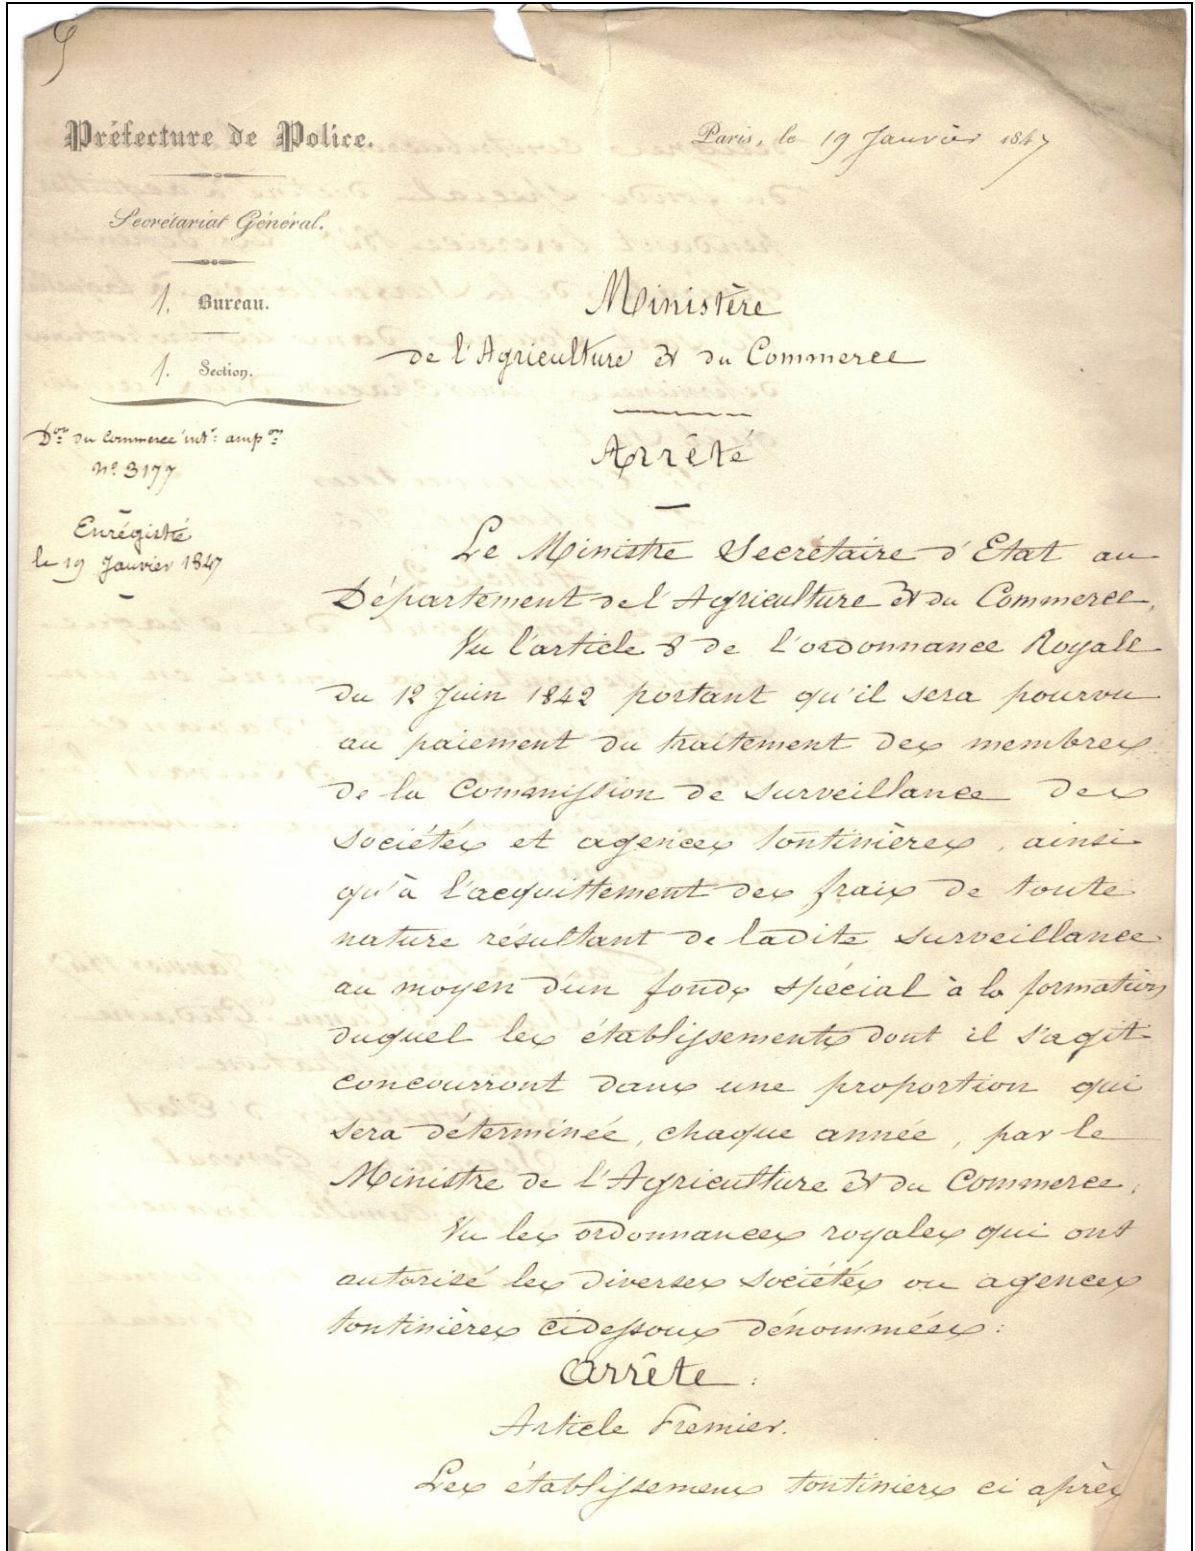 Préfecture de Police.
Secrétariat Général.
1. Bureau.
1. Section.
Don du Commerce intr: ampon
No. 3177
Enrégistré
le 19 Janvier 1847
Paris, le 19 Janvier 1847
Ministère
de l'Agriculture et du Commerce
Arrêté
Le Ministre Secrétaire d'Etat au
Département de l'Agriculture et du Commerce,
Vu l'article 8 de l'ordonnance Royale
du 12 Juin 1842 portant qu'il sera pourvu
au paiement du traitement des membres
de la Commission de surveillance des
sociétés et agences tontinières, ainsi
qu'à l'acquittement des frais de toute
nature résultant de ladite surveillance
au moyen d'un fonds spécial à la formation
duquel les établissements dont il s'agit
concourront dans une proportion qui
sera déterminée, chaque année, par le
Ministre de l'Agriculture et du Commerce,
Vu les ordonnances royales qui ont
autorisé les diverses sociétés ou agences
tontinières cidessous dénommées:
Arrête:
Article Premier.
Les établissemens tontiniers ci après